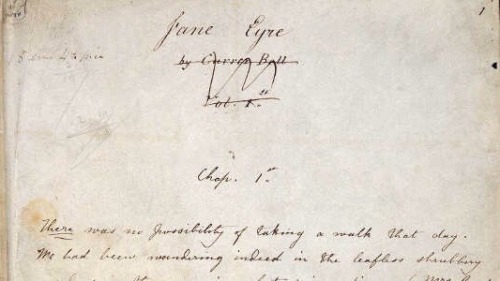 1
Jane Eyre
by Currer Bell
Vol. 1st
Chap. 1st
There was no possibility of taking a walk that day.
We had been wandering indeed in the leafless shrubbery